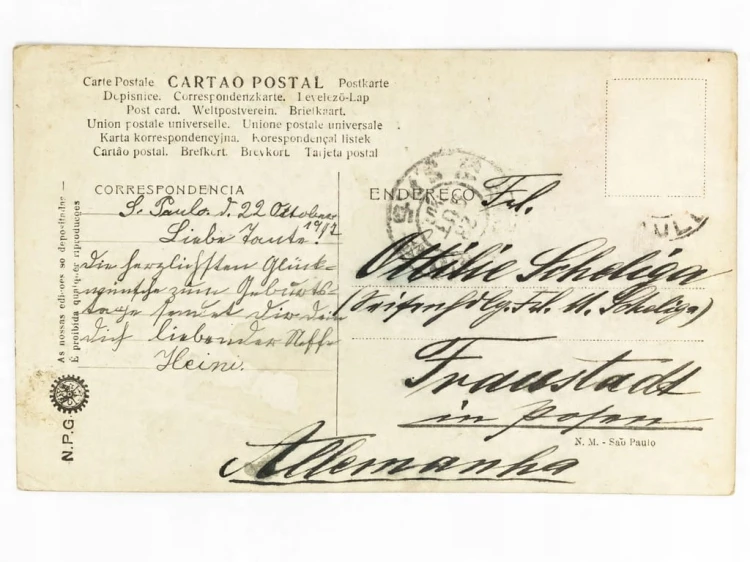 Carte Postale CARTAO POSTAL Postkarte
Dopisnice. Correspondenzkarte. Levelező-Lap
Post card. Weltpostverein. Briefkaart.
Union postale universelle. Unione postale universale
Karta korrespondencyjna. Korespondençal listek
Cartão postal. Brefkort. Brevkort. Tarjeta postal
CORRESPONDENCIA
S. Paulo d. 22 October
1912
Liebe Tante!
Die herzlichsten Glück-
wünsche zum Geburts-
tage sendet Dir Dein
Dich liebender Neffe
Heini.
ENDEREÇO Frl.
Ottilie Scholiga
(Seifenhdlg. Frl. A. Scholiga)
Fraustadt
in Posen
Allemanha
N. M. - São Paulo
As nossas edições so depositadas —
É proibida qualquer riproducçes
N.P.G.